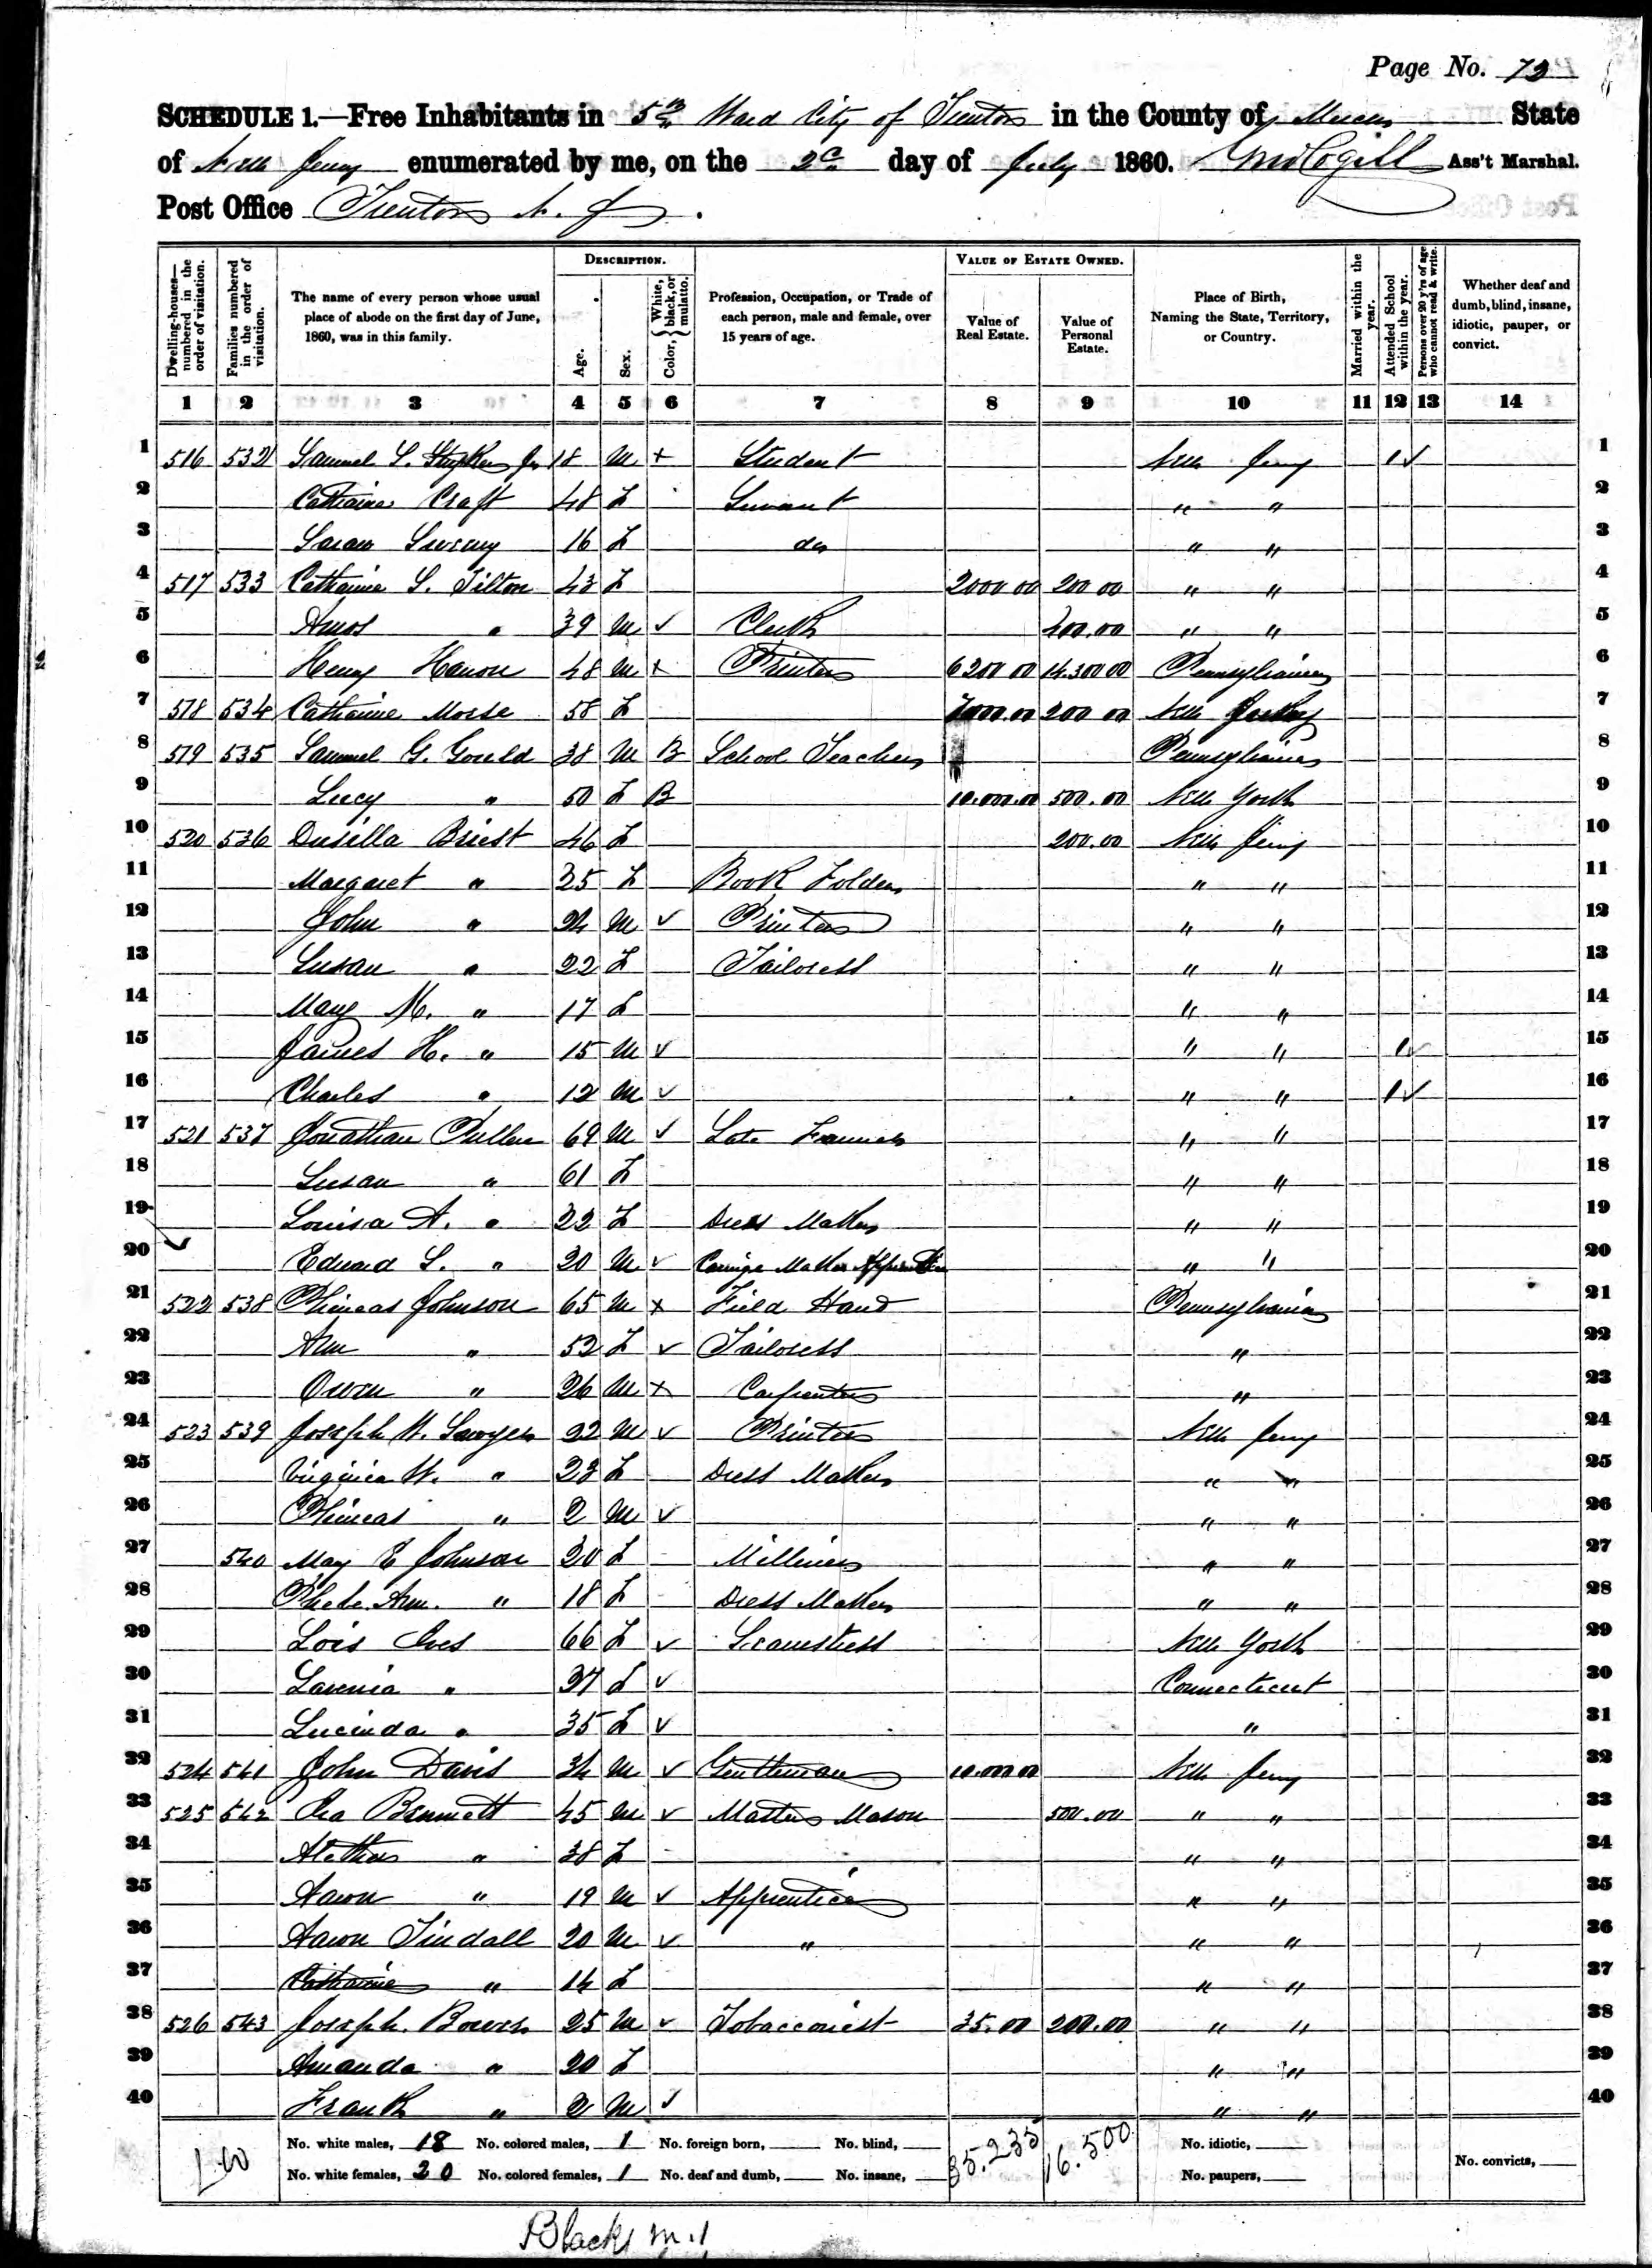 Page No. 73
SCHEDULE 1.—Free Inhabitants in 5th Ward City of Trenton in the County of Mercer State
of New Jersey enumerated by me, on the 2d day of July 1860. Ass't Marshal.
Post Office Trenton N. J.
DESCRIPTION. VALUE OF ESTATE OWNED.
Dwelling-houses—numbered in the order of visitation. Families numbered in the order of visitation. The name of every person whose usual place of abode on the first day of June, 1860, was in this family. Age. Sex. Color, { White, black, or mulatto. Profession, Occupation, or Trade of each person, male and female, over 15 years of age. Value of Real Estate. Value of Personal Estate. Place of Birth, Naming the State, Territory, or Country. Married within the year. Attended School within the year. Persons over 20 y'rs of age who cannot read & write. Whether deaf and dumb, blind, insane, idiotic, pauper, or convict.
1 2 3 4 5 6 7 8 9 10 11 12 13 14
1 516 532 Samuel S. Stryker Jr 18 M + Student New Jersey 1 ✓ 1
2 Catharine Craft 48 F Servant " " 2
3 Sarah 16 F do " " 3
4 517 533 Catharine S. Tilton 43 F 2000 00 200 00 " " 4
5 Amos " 39 M ✓ Clerk 400.00 " " 5
6 Henry Harron 48 M + Printer 6200 00 14.300 00 Pennsylvania 6
7 518 534 Catharine Morse 58 F 7000.00 200 00 New Jersey 7
8 519 535 Samuel G. Gould 38 M B School Teacher Pennsylvania 8
9 Lucy " 50 F B 10.000.00 500.00 New York 9
10 520 536 Drusilla Briest 46 F 200.00 New Jersey 10
11 Margaret " 25 F Book Folder " " 11
12 John " 24 M ✓ Printer " " 12
13 Susan " 22 F Tailoress " " 13
14 Mary M. " 17 F " " 14
15 James H. " 15 M ✓ " " 1 ✓ 15
16 Charles " 12 M ✓ " " 1 ✓ 16
17 521 537 Jonathan Pullen 69 M ✓ Late Farmer " " 17
18 Susan " 61 F " " 18
19 Louisa A. " 22 F Dress Maker " " 19
20 ✓ Edward S. " 20 M ✓ Carriage Maker Apprentice " " 20
21 522 538 Phineas Johnson 65 M + Field Hand Pennsylvania 21
22 Ann " 52 F ✓ Tailoress " 22
23 Owen " 26 M + Carpenter " 23
24 523 539 Joseph H. Sawyer 22 M ✓ Printer New Jersey 24
25 Virginia W. " 23 F Dress Maker " " 25
26 Phineas " 2 M ✓ " " 26
27 540 Mary E Johnson 20 F Milliner " " 27
28 Phebe Ann. " 18 F Dress Maker " " 28
29 Lois Ives 66 F ✓ Seamstress New York 29
30 Lavenia " 37 F ✓ Connecticut 30
31 Lucinda " 35 F ✓ " 31
32 524 541 John Davis 34 M ✓ Gentleman 10.000 00 New Jersey 32
33 525 542 Ira Bennett 45 M ✓ Master Mason 500.00 " " 33
34 " 38 F " " 34
35 Aaron " 19 M ✓ Apprentice " " 35
36 Aaron Tindall 20 M ✓ " " " 36
37 Catharine " 14 F " " 37
38 526 543 Joseph Bowers 25 M ✓ Tobacconist 35.00 200.00 " " 38
39 Amanda " 20 F " " 39
40 Frank " 2 M ✓ " " 40
No. white males, 18 No. colored males, 1 No. foreign born, No. blind, 35.235 16.500 No. idiotic,
No. white females, 20 No. colored females, 1 No. deaf and dumb, No. insane, No. paupers, No. convicts,
Blacks m.1